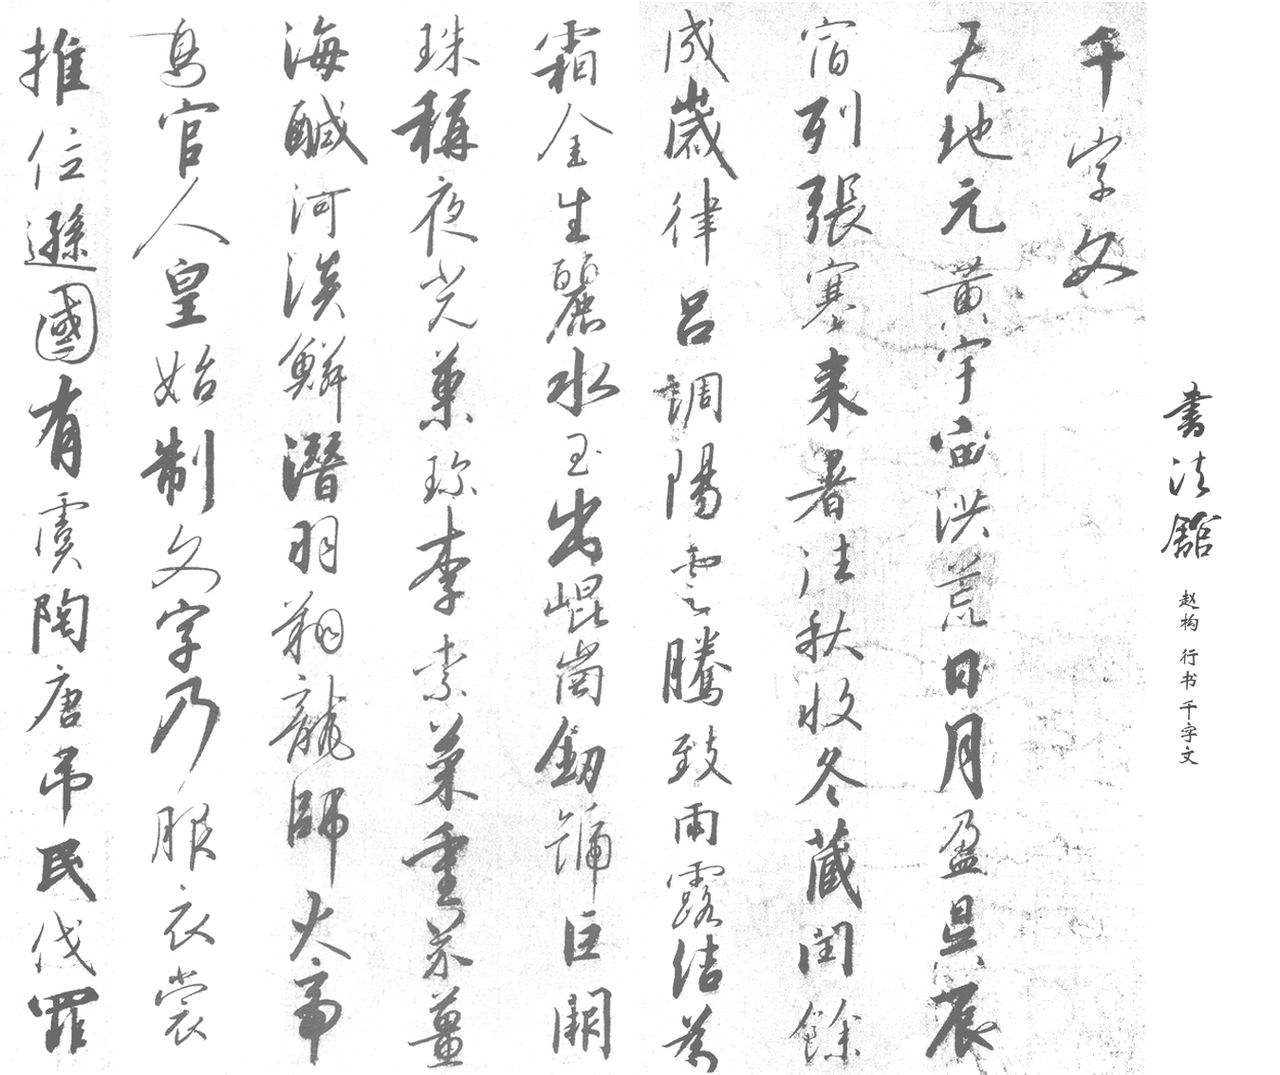 書法舘
赵构 行书千字文
千字文
天地元黄宇宙洪荒日月盈昃辰
宿列張寒来暑往秋收冬蔵閏餘
成歳律吕調陽雲騰致雨露結為
霜金生麗水玉出崐崗釼號巨闕
珠稱夜光菓珍李柰菜重芥薑
海鹹河淡鱗潜羽翔龍師火帝
鳥官人皇始制文字乃服衣裳
推位遜國有虞陶唐吊民伐罪